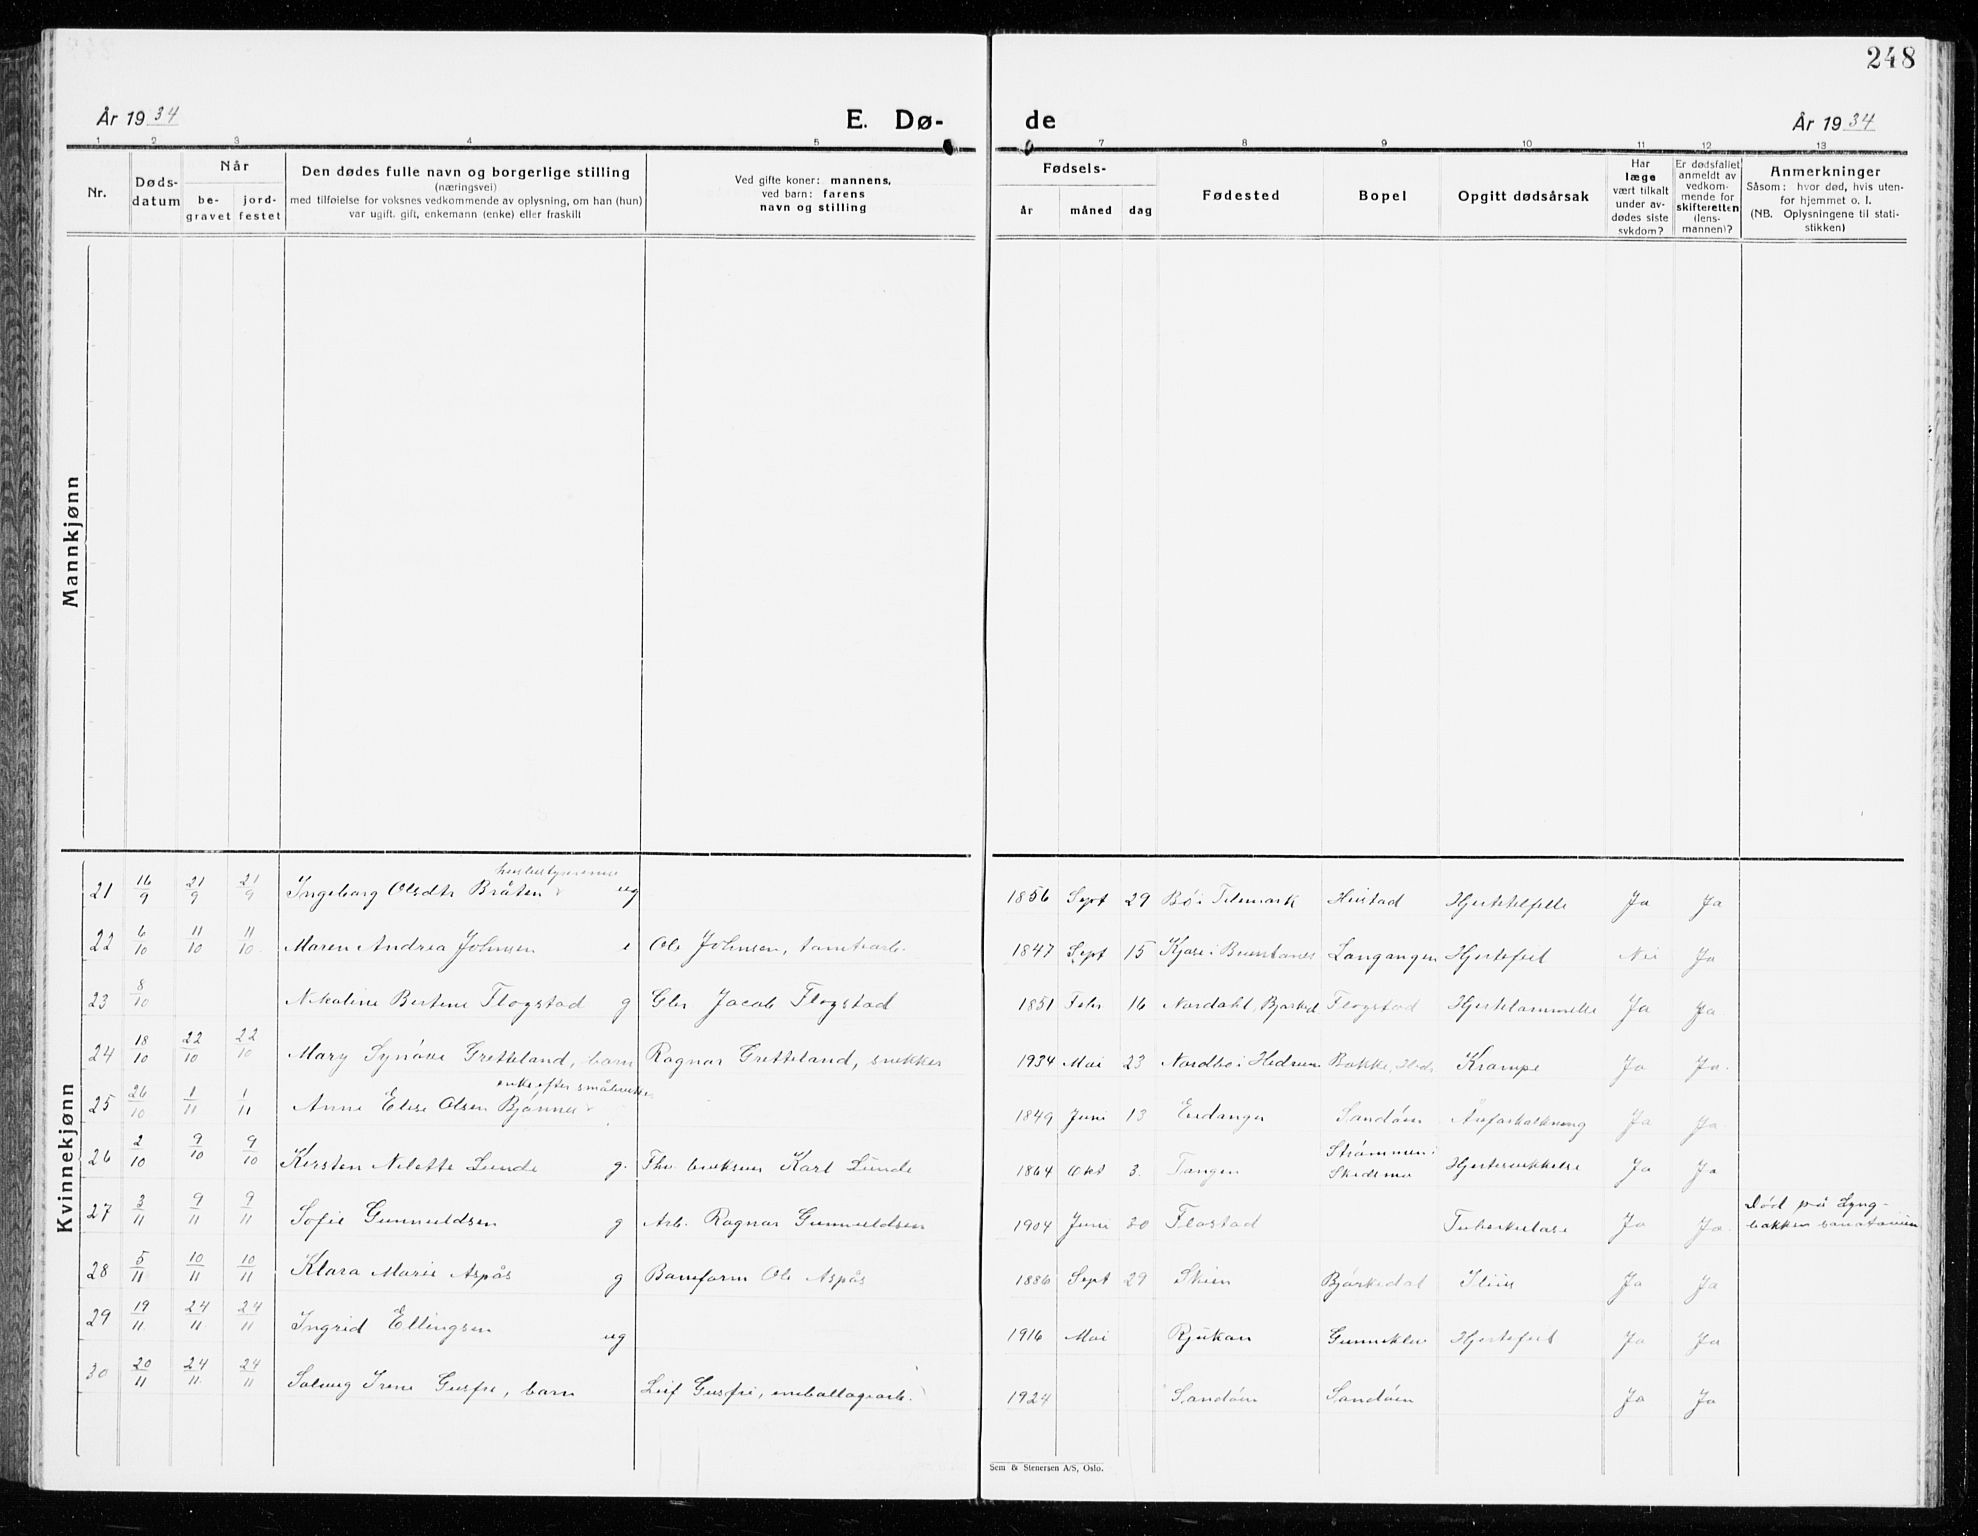 248
År 1934 E. Dø- de År 1934
1 2 3 4 5 7 8 9 10 11 12 13
Nr.
Døds-
datum
Når
be-
gravet
jord-
festet
Den dødes fulle navn og borgerlige stilling
(næringsvei)
med tilføielse for voksnes vedkommende av oplysning, om han (hun)
var ugift, gift, enkemann (enke) eller fraskilt
Ved gifte koner: mannens,
ved barn: farens
navn og stilling
Fødsels-
år måned dag
Fødested
Bopel
Opgitt dødsårsak
Har
læge
vært tilkalt
under av-
dødes siste
sykdom?
Er dødsfallet
anmeldt av
vedkom-
mende for
skifteretten
(lens-
mannen)?
Anmerkninger
Såsom: hvor død, hvis uten-
for hjemmet o. l.
(NB. Oplysningene til stati-
stikken)
Mannkjønn
Kvinnekjønn
21 16/9 21/9 21/9 Ingeborg Olsdtr Bråten ug 1856 Sept 29 Bø i Telemark Hjertetilfelle Ja Ja
22 6/10 11/10 11/10 Maren Andrea Johnsen e Ole Johnsen, tomtearb. 1847 Sept 15 Langangen Hjertefeil Nei Ja
23 8/10 Nikoline Bertine Flogstad g Gbr Jacob Flogstad 1851 Febr 16 Nordahl, Bjørked Flogstad Hjertelammelse Ja Ja
24 18/10 22/10 22/10 Mary Synøve Gretteland, barn Ragnar Gretteland, snekker 1934 Mai 23 Nordbø i Hedrum Bakke, Hedr Krampe Ja Ja
enke efter småbruker
25 26/10 1/11 1/11 Anne Elise Olsen Bjønnes 1849 Juni 13 Eidanger Sandøen Åreforkalkning Ja Ja
26 2/10 9/10 9/10 Kirsten Nilette Lunde g. Fhv. Karl Lunde 1864 Okt 3. Tangen Strømmen i
Skedsmo Hjertesvekkelse Ja Ja
27 3/11 9/11 9/11 Sofie Gunnuldsen g Arb. Ragnar Gunnuldsen 1904 Juni 20 Flostad Tuberkulose Ja Ja Død på Lyng-
bakken sanatorium
28 5/11 10/11 10/11 Klara Marie Aspås g Baneform Ole Aspås 1886 Sept 29 Skien Bjørkedal Ja Ja
29 19/11 24/11 24/11 Ingrid Ellingsen ug 1916 Mai Rjukan Gunneklev Hjertefeil Ja Ja
30 20/11 24/11 24/11 Solveig Irene Gusfre, barn Leif Gusfre, emballagearb. 1924 Sandøen Sandøen Ja Ja
Sem & Stenersen A/S, Oslo.